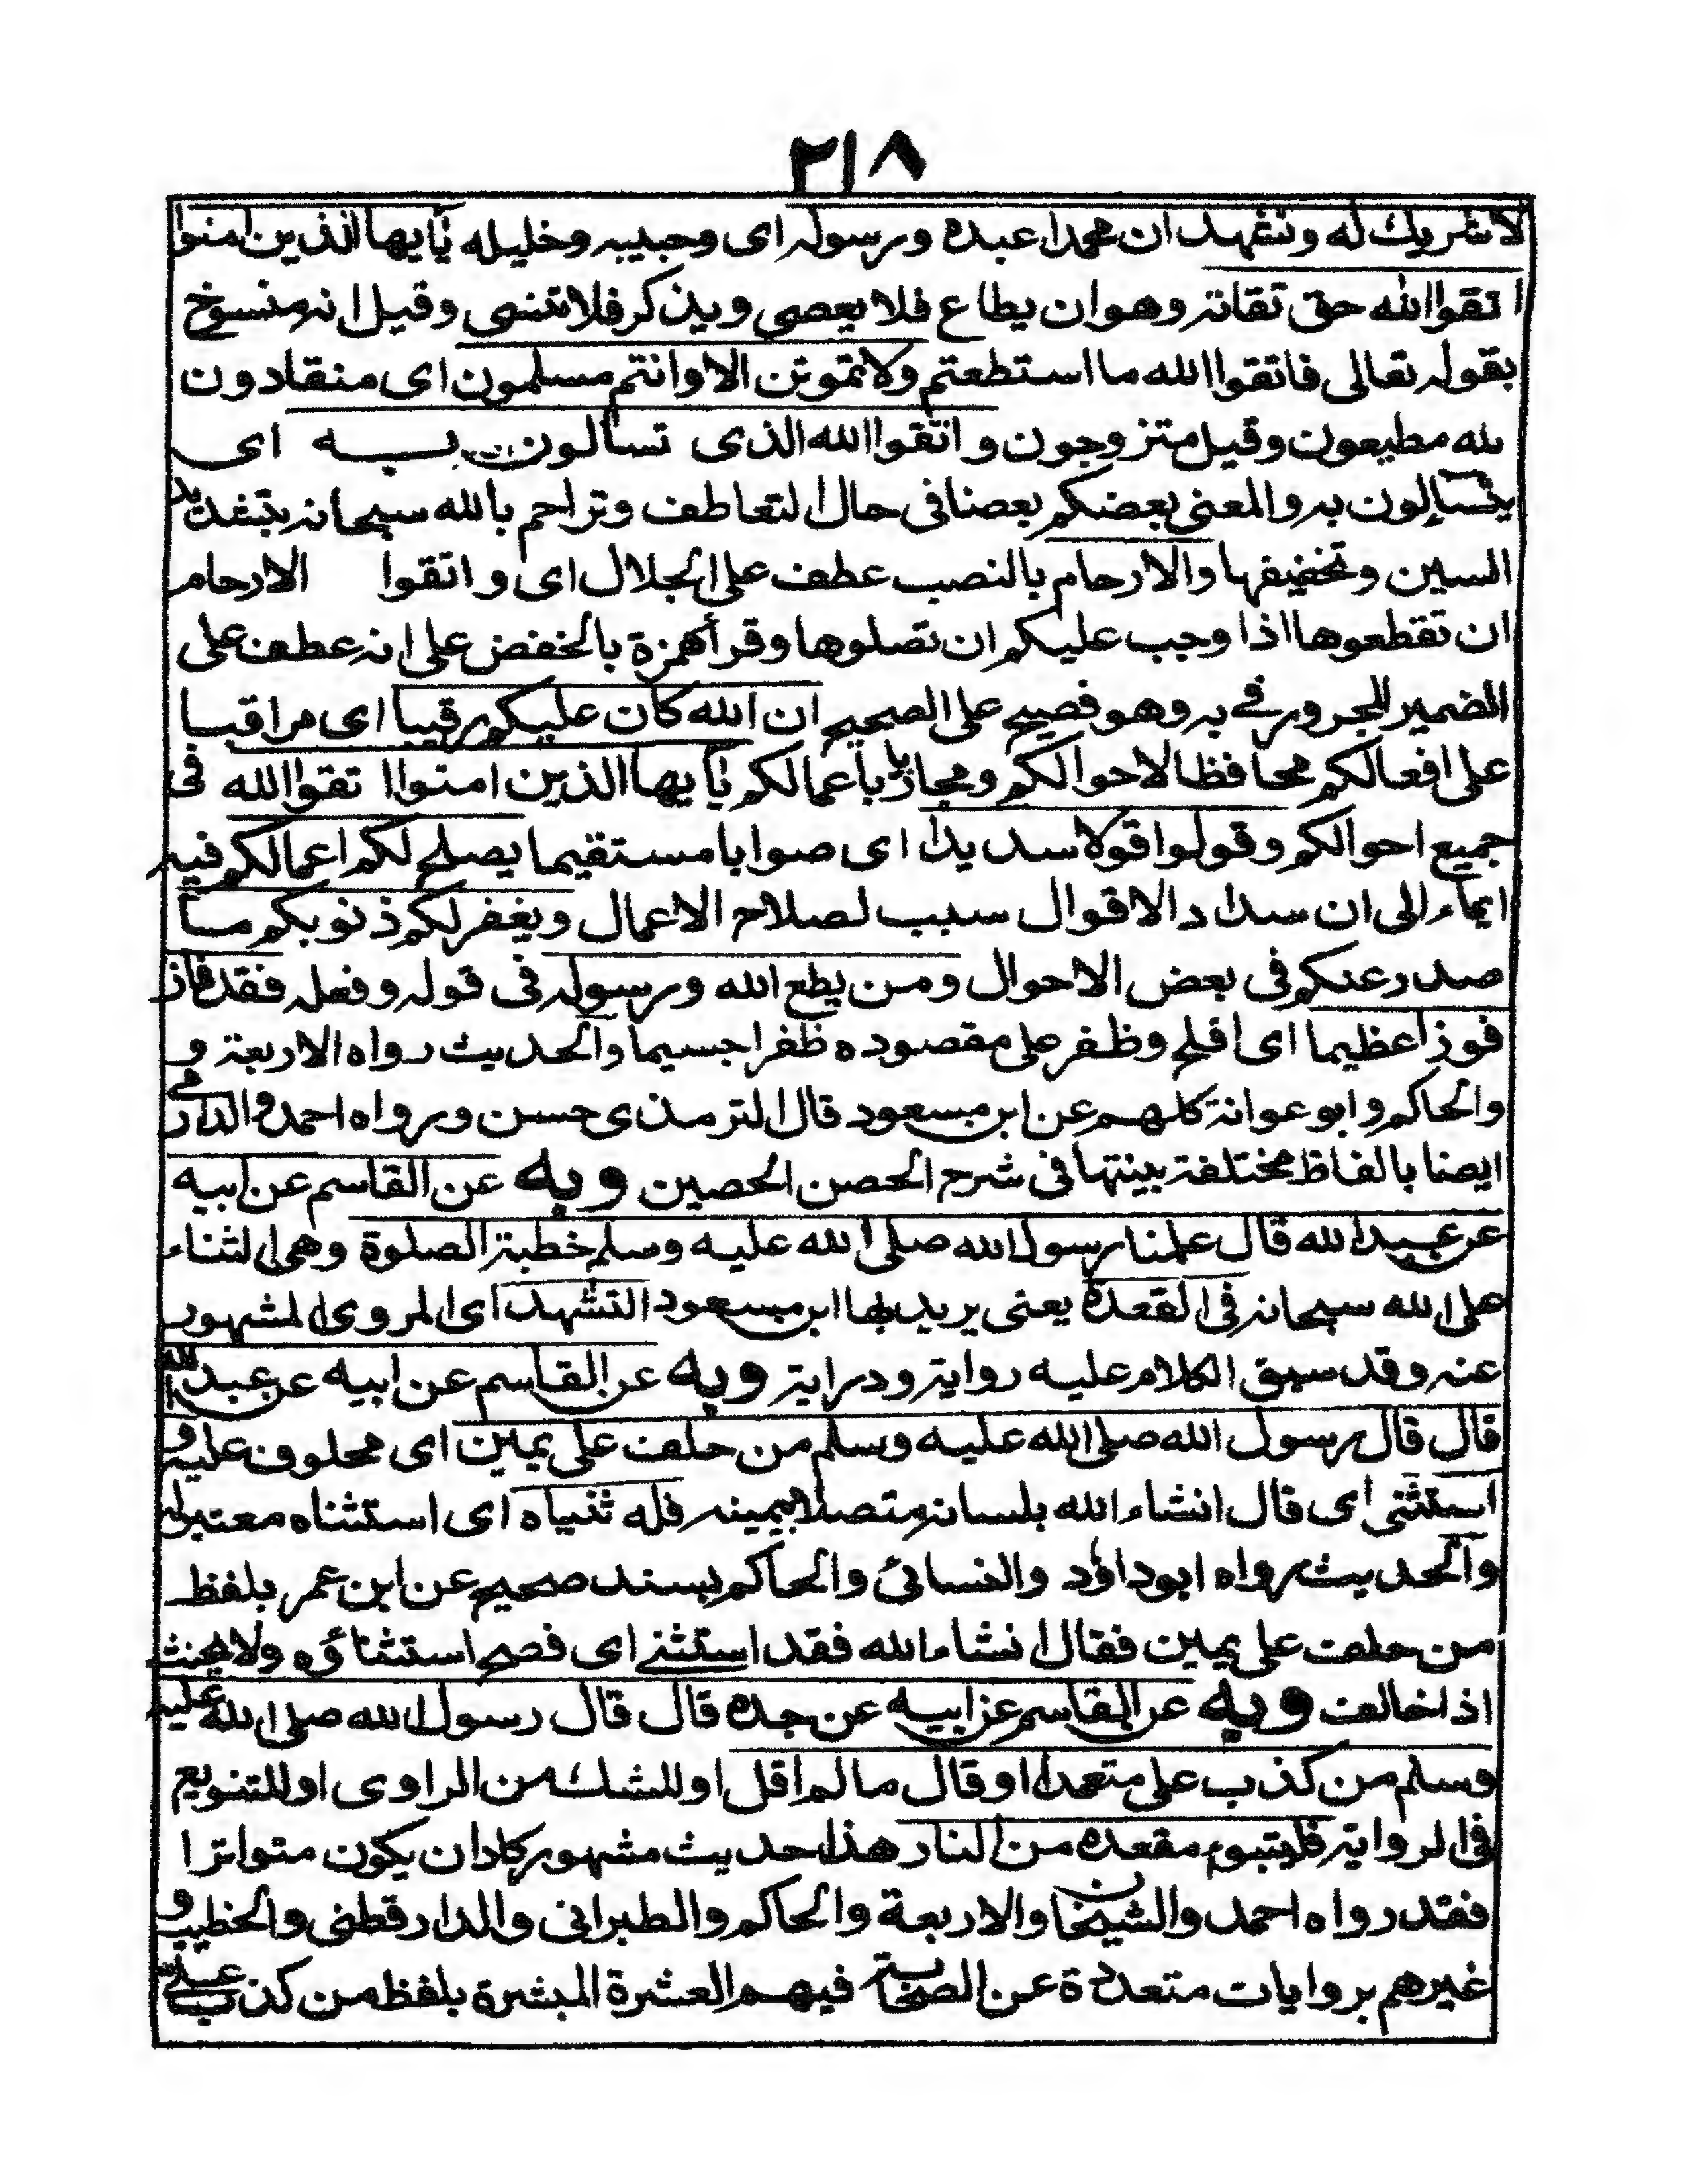 ٢١٨
لا شريك له ونشهد ان محمدا عبده ورسوله اى وحبيبه وخليله يٰأيها الذين امنوا
اتقوا الله حق تقاته وهو ان يطاع فلا يعصى ويذكر فلا تنسى وقيل انه منسوخ
بقوله تعالى فاتقوا الله ما استطعتم ولا تموتن الا وانتم مسلمون اى منقادون
لله مطيعون وقيل متزوجون واتقوا الله الذى تسألون به اى
يتسالون به والمعنى بعضكم بعضا فى حال التعاطف وتراحم بالله سبحانه بتشديد
السين وتخفيفها والارحام بالنصب عطف على الجلال اى واتقوا الارحام
ان تقطعوها اذا وجب عليكم ان تصلوها وقرأ همزة بالخفض على انه عطف على
الضمير المجرور فى به وهو فصيح على الصحيح ان الله كان عليكم رقيبا اى مراقبا
على افعالكم محافظا لاحوالكم ومجازيا باعمالكم يٰأيها الذين امنوا اتقوا الله فى
جميع احوالكم وقولوا قولا سديدا اى صوابا مستقيما يصلح لكم اعمالكم فيه
ايماء الى ان سداد الاقوال سبب لصلاح الاعمال ويغفر لكم ذنوبكم مسا
صدر عنكم فى بعض الاحوال ومن يطع الله ورسوله فى قوله وفعله فقد فاز
فوزا عظيما اى افلح وظفر على مقصوده ظفرا جسيما والحديث رواه الاربعة و
والحاكم وابو عوانة كلهم عن ابن مسعود قال الترمذى حسن ورواه احمد والدارمى
ايضا بالفاظ مختلفة بينتها فى شرح الحصن الحصين وبه عن القاسم عن ابيه
عن عبد الله قال علمنا رسول الله صلى الله عليه وسلم خطبة الصلوة وهى الثناء
على الله سبحانه فى القعدة يعنى يريد بها ابن مسعود التشهد اى المروى المشهور
عنه وقد سبق الكلام عليه رواية ودراية وبه عن القاسم عن ابيه عن عبد الله
قال قال رسول الله صلى الله عليه وسلم من حلف على يمين اى محلوف عليه و
استثنى اى قال انشاء الله بلسانه متصلا بيمينه فله ثنياه اى استثناه معتبر له
والحديث رواه ابو داؤد والنسائى والحاكم بسند صحيح عن ابن عمر بلفظ
من حلف على يمين فقال انشاء الله فقد استثنى اى فصح استثناؤه ولا يحنث
اذا خالف وبه عن القاسم عن ابيه عن جده قال قال رسول الله صلى الله عليه
وسلم من كذب على متعمدا او قال ما لم اقل او للشك من الراوى او للتنويع
فى الرواية فليتبوء مقعده من النار هذا حديث مشهور كاد ان يكون متواترا
فقد رواه احمد والشيخان والاربعة والحاكم والطبرانى والدارقطنى والخطيب و
غيرهم بروايات متعددة عن الصحابة فيهم العشرة المبشرة بلفظ من كذب على